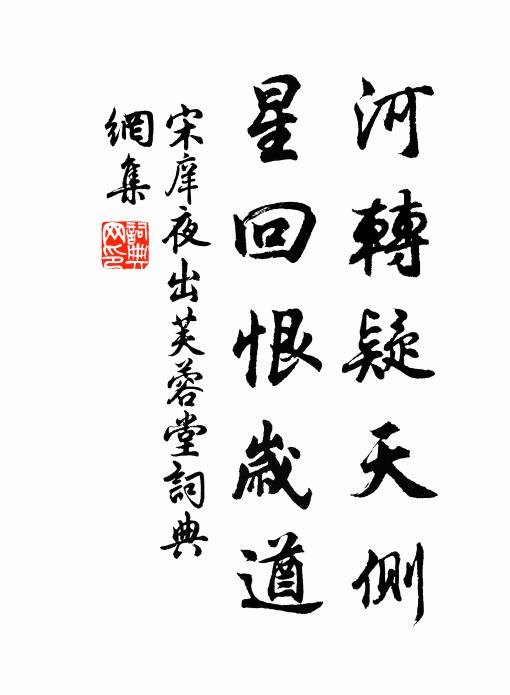 河轉疑天側
星回恨歲遒
宋庠夜出芙蓉堂詞典
網集
詞典
网印